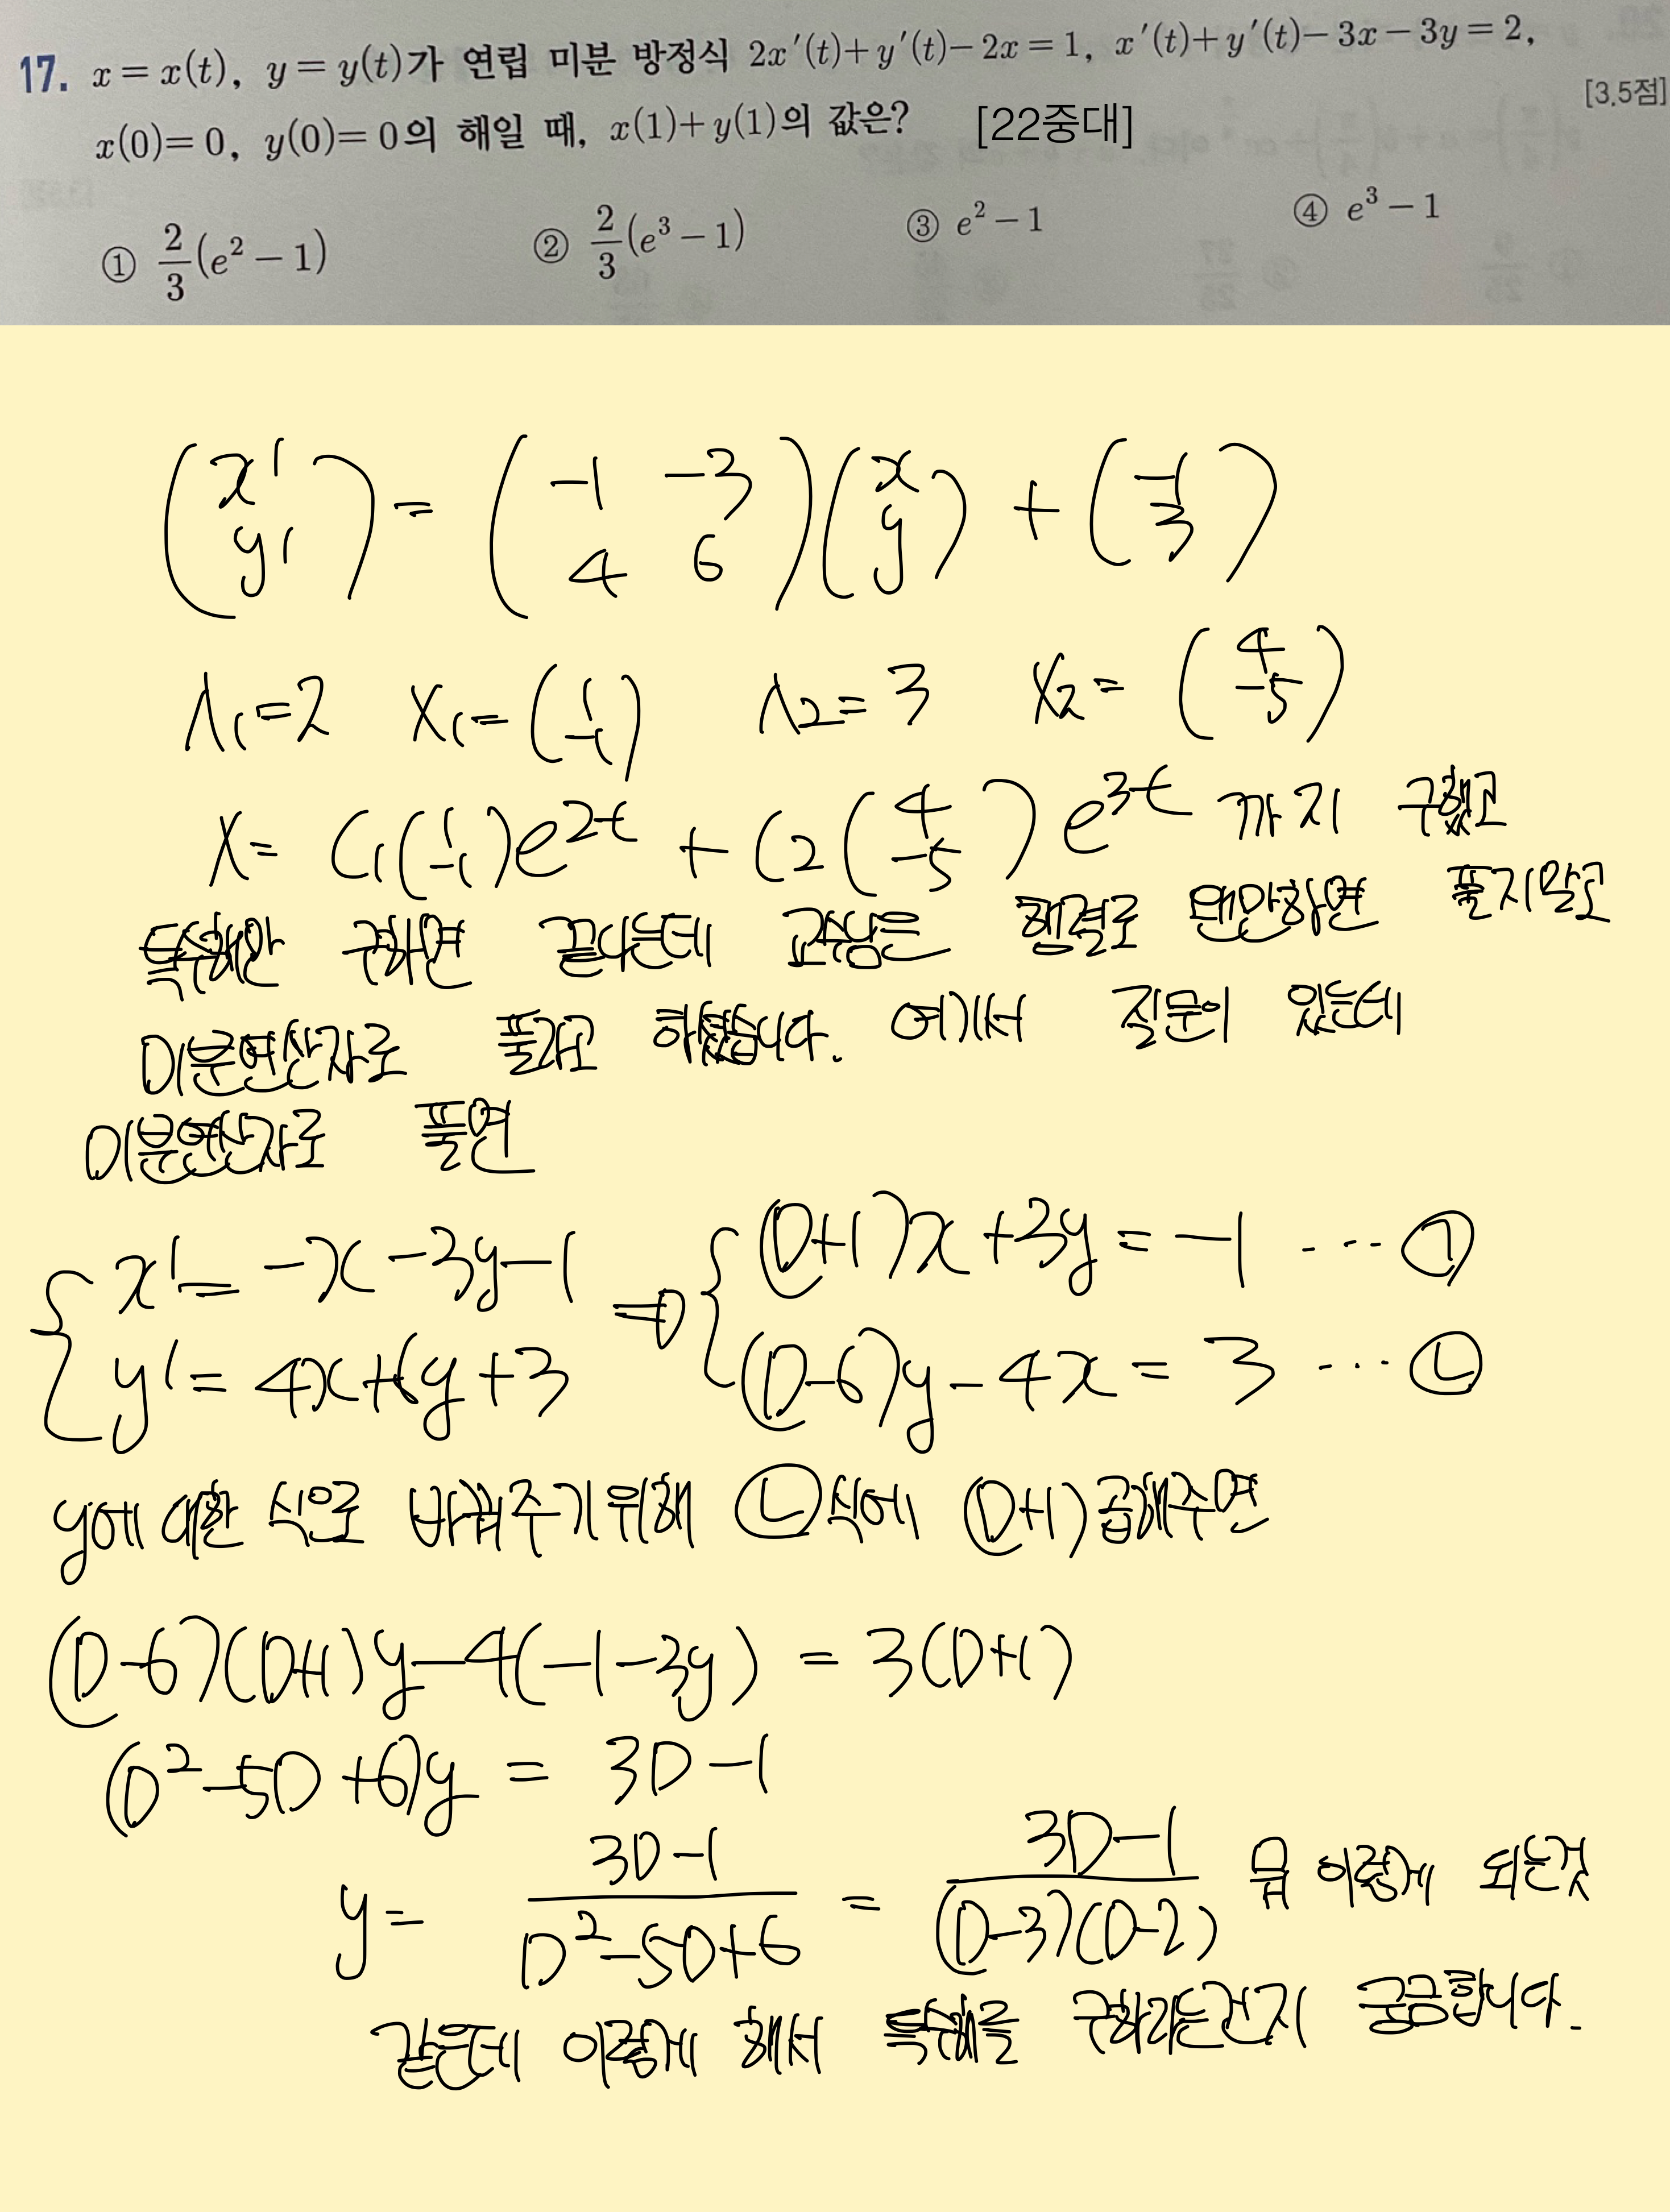 17. x = x(t), y = y(t)가 연립 미분 방정식 2x′(t)+y′(t)−2x = 1, x′(t)+y′(t)−3x−3y = 2,
x(0)=0, y(0)=0의 해일 때, x(1)+y(1)의 값은? [22중대] [3.5점]
① 2/3(e²−1) ② 2/3(e³−1) ③ e²−1 ④ e³−1
(x′ y′) = (−1 −3 4 6)(x y) + (−1 3)
λ₁=2 X₁=(1 −1) λ₂=3 X₂=(4 −5)
X= C₁(1 −1)e^2t + C₂(4 −5)e^3t 까지 구했고
특수해만 구하면 끝나는데 교수님은 행렬로 왠만하면 풀지말고
미분연산자로 풀라고 하셨습니다. 여기서 질문이 있는데
미분연산자로 풀면
{ x′= −x −3y −1 ⇒ { (D+1)x +3y = −1 ··· ㉠
y′= 4x+6y+3 (D−6)y − 4x = 3 ··· ㉡
y에 대한 식으로 바꿔주기위해 ㉡식에 (D+1)곱해주면
(D−6)(D+1)y−4(−1−3y) = 3(D+1)
(D²−5D+6)y = 3D−1
y= 3D−1/D²−5D+6 = 3D−1/(D−3)(D−2) 이렇게 되는것
같은데 이렇게 해서 특수해를 구하라는건지 궁금합니다.